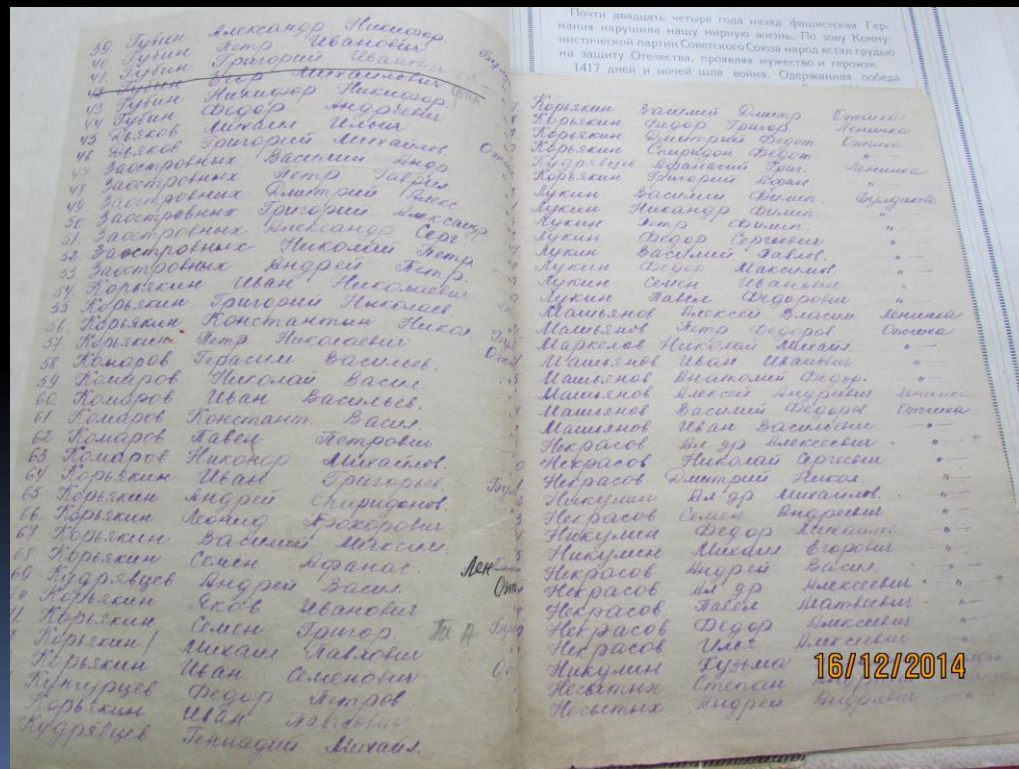 Почти двадцать четыре года назад фашистская Гер-
мания нарушила нашу мирную жизнь. По зову Комму-
нистической партии Советского Союза народ встал грудью
на защиту Отечества, проявляя мужество и героизм.
1417 дней и ночей шла война. Одержанная победа
39. Губин Александр Никифор
40. Губин Петр Иванович
41. Губин Григорий Иванович
42 Губин Егор Михайлович
43 Губин Никифор Никифор.
44 Губин Федор Андреевич
45 Дьяков Михаил Ильич
46 Дьяков Григорий Михайлов.
47 Заостровных Василий Андр
48 Заостровных Петр Гаврил.
49 Заостровных Дмитрий Алекс
50 Заостровных Григорий Александр
51. Заостровных Александр Серг.
52. Заостровных Николай Петр
53 Заостровных Андрей Петр.
54. Корьякин Иван Николаевич
55 Корьякин Григорий Николаев.
56. Корьякин Константин Никол
57. Корьякин Петр Николаевич
58 Комаров Герасим Васильев.
59 Комаров Николай Васил.
60. Комаров Иван Васильев.
61. Комаров Констант. Васил.
62 Комаров Павел Петрович
63 Комаров Никонор Михайлов.
64 Корьякин Иван Григорьев.
65 Корьякин Андрей Спиридонов.
66. Корьякин Леонид Прохорович
67. Корьякин Василий Максим.
68. Корьякин Семен Афанас.
69 Кудрявцев Андрей Васил.
Корьякин Яков Иванович
Корьякин Семен Григор.
Корьякин Михаил Павлович
Корьякин Иван Семенович
Кунгурцев Федор Петров
Корьякин Иван Павлович
Кудрявцев Геннадий Михайл.
Корьякин Василий Дмитр Опсика
Корьякин Федор Григор Ленинка
Корьякин Дмитрий Федот Опсика
Корьякин Спиридон Федот "
Кудрявцев Афанасий Григ. Ленинка
Корьякин Григорий Афан. "
Лукин Василий Филип. Булдакова
Лукин Никандр Филип "
Лукин Петр Филип. "
Лукин Федор Сергеевич "
Лукин Василий Павлов. "
Лукин Федор Максимов "
Лукин Семен Иванович "
Лукин Павел Федорович "
Машьянов Алексей Власим. Ленинка
Машьянов Петр Федоров Опсика
Маркелов Николай Михаил. "
Машьянов Иван Иванович "
Машьянов Анатолий Федор. "
Машьянов Алексей Андреевич Ленинка
Машьянов Василий Федоров. Опсика
Машьянов Иван Васильевич "
Некрасов Ал др Алексеевич "
Некрасов Николай Сергеевич "
Некрасов Дмитрий Никол. "
Никулин Ал др Михайлов. "
Некрасов Семен Андреевич "
Никулин Федор Михайлов. "
Никулин Михаил Егорович "
Некрасов Андрей Васил. "
Некрасов Ал др Алексеевич "
Некрасов Павел Матвеевич "
Некрасов Федор Алексеевич "
Некрасов Илья Алексеевич "
Никулин Кузьма
Несытных Степан
Несытных Андрей Андреевич "
16/12/2014